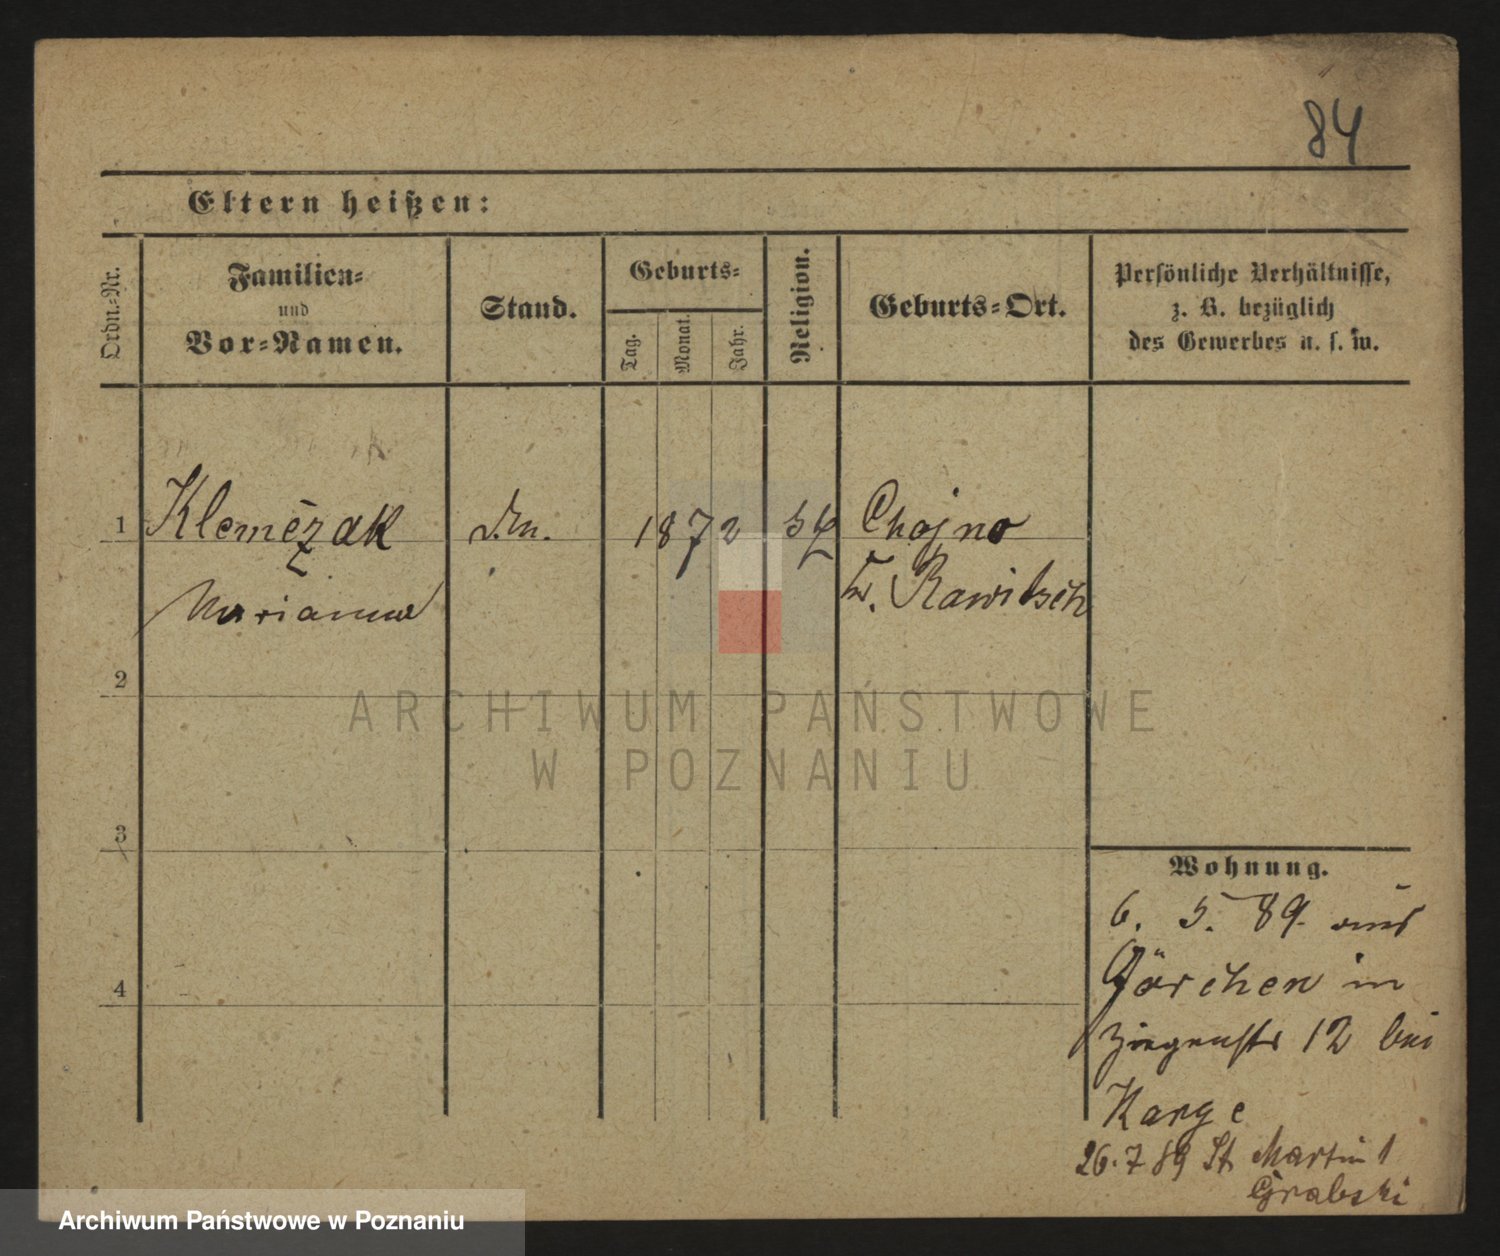 84
Eltern heißen:
Ordn.-Nr.
Familien-
und
Vor-Namen.
Stand.
Geburts-
Tag.
Monat.
Jahr.
Religion.
Geburts-Ort.
Persönliche Verhältnisse,
z. B. bezüglich
des Gewerbes u. s. w.
1 Klemczak 1872 Chojno
Marianna Kr. Rawitsch
2
ARCHIWUM PAŃSTWOWE
W POZNANIU
3
4
Wohnung.
6. 5. 89. aus
Görchen in
Ziegenstr 12 bei
Karge
26.7 89 St Martin 1
Grabski
Archiwum Państwowe w Poznaniu